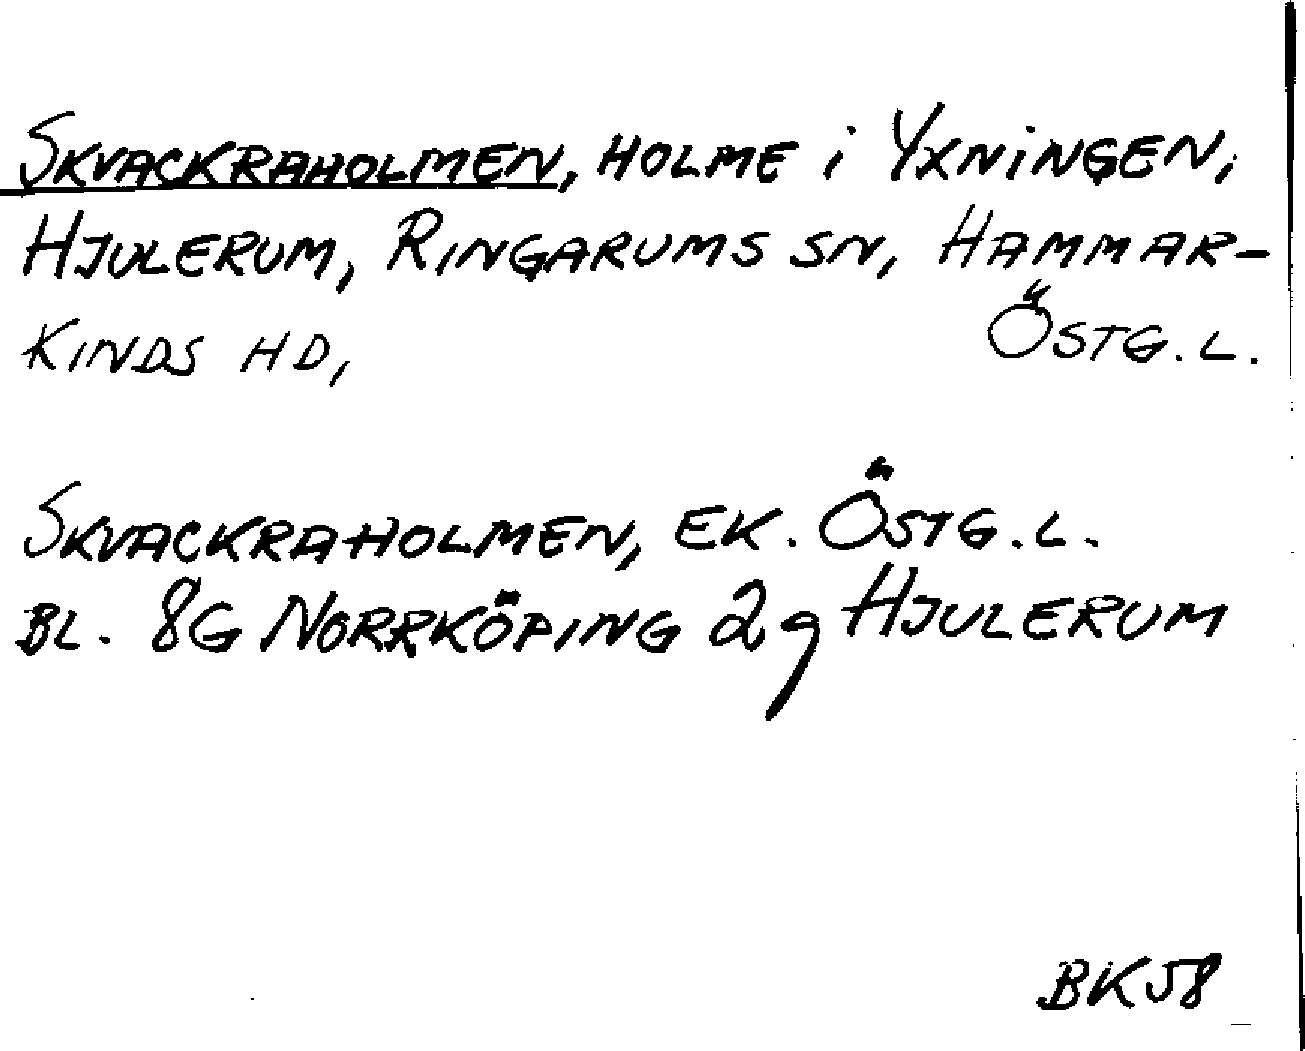 SKVACKRAHOLMEN, HOLME i YXNiNGEN,
HJULERUM, RINGARUMS SN, HAMMAR-
KINDS HD, ÖSTG. L.
SKVACKRAHOLMEN, EK. ÖSTG. L.
BL. 8G NORRKÖPING 2g HJULERUM
BK58